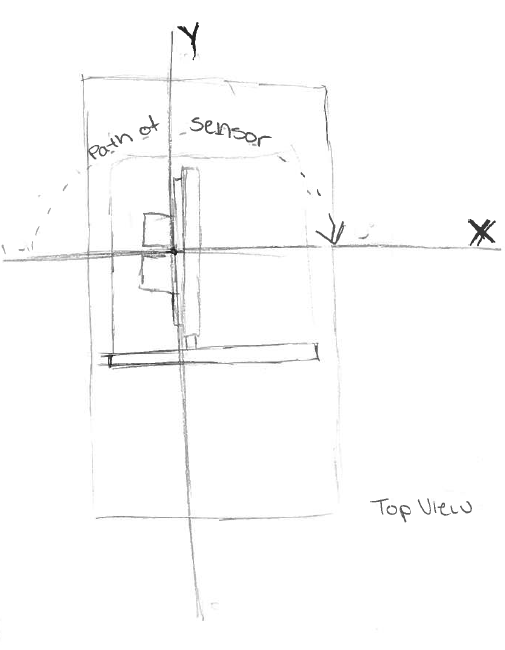 Y
Path of sensor
X
Top View